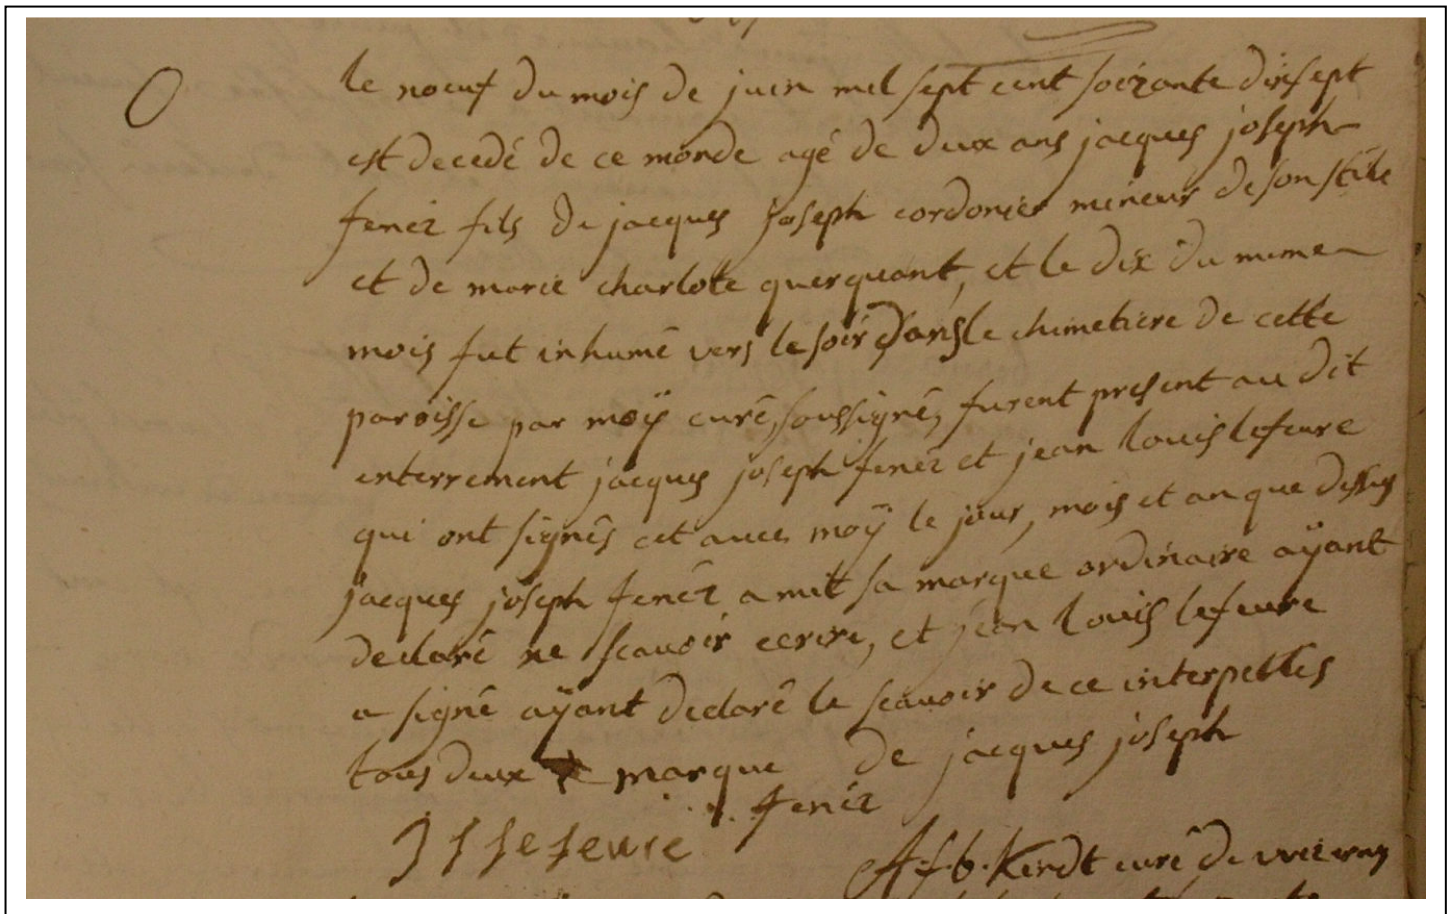 le noeuf du mois de juin mil sept cent soizante dix sept
est decedé de ce monde agé de deux ans jacques joseph
fenez fils de jacques joseph cordonier mineur de son stile
et de marie charlote querquant, et le dix du meme
mois fut inhumé vers le soir dans le chimetiere de cette
paroisse par moÿ curé, soussigné, furent present au dit
enterrement jacques joseph fenez et jean louis lefeure
qui ont signés cet avec moÿ le jour, mois et an que dessus
jacques joseph fenéz a mit sa marque ordinaire aÿant
declaré ne scavoir ecrire, et jean louis lefeure
a signé aÿant declaré le scavoir de ce interpellés
tous deux marque de jacques joseph
fenéz
J l lefeure
A. f. b. Kindt curé de